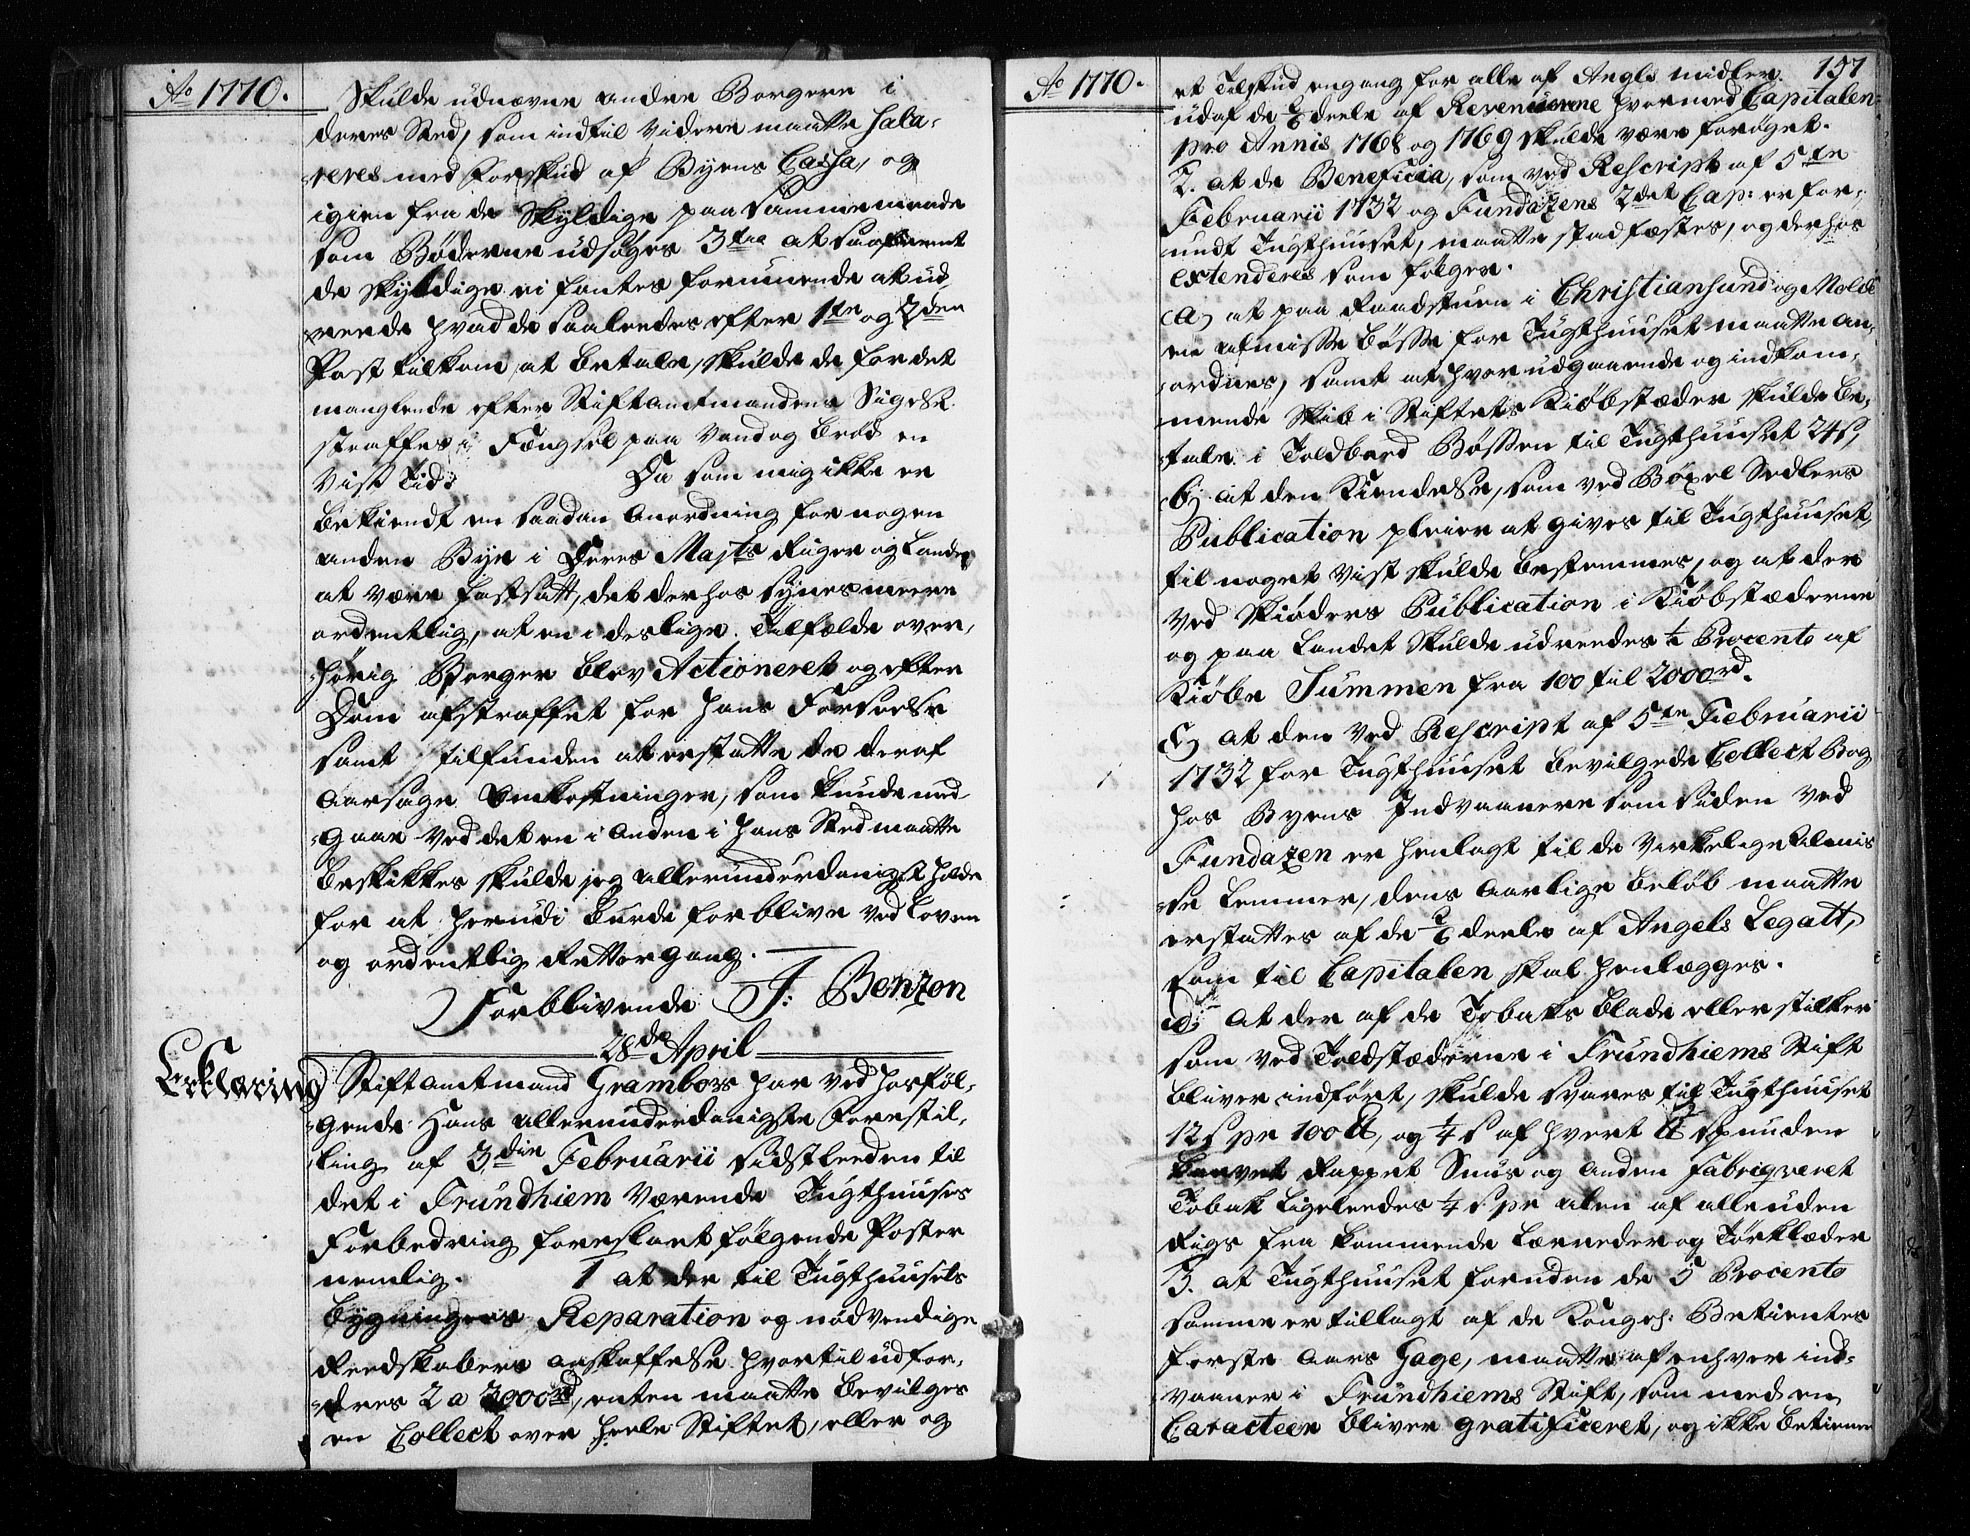 Ao 1770.
Skulde udnævne andre Borgere i
deres Sted, som indtil videre maatte Sala-
reres med Forskud af Byens Cassa, og
igien fra de Skyldige paa samme maade
som Bøderne udsøges 3tie at saafremt
de skyldige ei fantes formuende at ud
rede hvad de saaledes efter 1te og 2den
Post tilkom at betale, skulde de for det
manglende efter Stiftamtmandens Sigelse
straffes i Fængsel paa Vand og brød en
vis Tid: Da som mig ikke er
bekiendt en saadan Anordning for nogen
anden Bye i Deres Majts Riger og Lande
at være fastsatt, det derhos synes meere
ordentlig, at en i deslige Tilfælde over-
hørig Borger blev Actioneret og efter
Dom afstraffet for hans Forseelse
samt tilfunden at erstatte de deraf
Aarsage Omkostninger, som kunde med-
gaae ved det en anden i hans Sted maatte
beskikkes skulde jeg allerunderdanigst holde
for at herudi burde forblive ved Loven
og ordentlig Rettergang.
Forblivende J: Benzon
28de April
Erklæring Stiftamtmand Grambow har ved hosføl-
gende Hans allerunderdanigste Forestil-
ling af 3die Februarii sidstleeden til
det i Trundhiem værende Tugthuuses
Forbedring foreslaaet følgende Poster
nemlig. 1 at der til Tugthuusets
bygningers Reparation og nødvendige
Reedskabers anskaffelse hvortil udfor-
dres 2 a 3000rd, enten maatte bevilges
en Collect over heele Stiftet, eller og
Ao 1770. 157
et Tilskud engang for alle af Angels midler
udaf de deele af Revenuerne hvormed Capitalen
pro Annis 1768 og 1769 skulde være forøget.
2. at de Beneficia, som ved Rescript af 5te
Februarii 1732 og Fundazens 2det Cap: er for-
undt Tugthuuset, maatte stadfæstes, og derhos
extenderes som følger.
a) at paa Raadstuen i Christiansund og Molde
en almisse bøsse for Tugthuuset maatte an-
ordnes, samt at hver udgaaende og indkom-
mende Skib i Stiftets Kiøbstæder skulde be-
tale i Toldboed Bøssen til Tugthuuset 24 s,
b) at den Kiendelse, som ved Bøxel Sedlers
Publication pleier at gives til Tugthuuset,
til noget vist skulde bestemmes, og at der
ved Skiøders Publication i Kiøbstæderne
og paa Landet skulde udreedes ¼ Procento af
Kiøbe Summen fra 100 til 2000rd.
c) at den ved Rescript af 5te Februarii
1732 for Tugthuuset bevilgede Collect Bog
hos Byens Indvaanere som siden ved
Fundazen er henlagt til de virkelige Almis
se Lemmer, dens Aarlige beløb maatte
erstattes af de deele af Angels Legatt,
som til Capitalen skal henlægges.
d) at der af de Tobaks blade eller stilker
som ved Toldstæderne i Trundhiems Stift
bliver indført, skulde svares til Tugthuuset
12 s pr 100 ℔, og ¼ s af hvert ℔ spunden
Rappet Snus og anden fabriqveret
Tobak ligeleedes ¼ s pr alen af alle uden
Rigs fra kommende Lærreder og Tørklæder
3. at Tugthuuset foruden de 5 Procento
samme er tillagt af de Kongel: Betientes
første Aars Gage, maatte af enhver ind-
vaaner i Trundhiems Stift, som med en
Caracteer bliver gratificeret, og ikke betiener